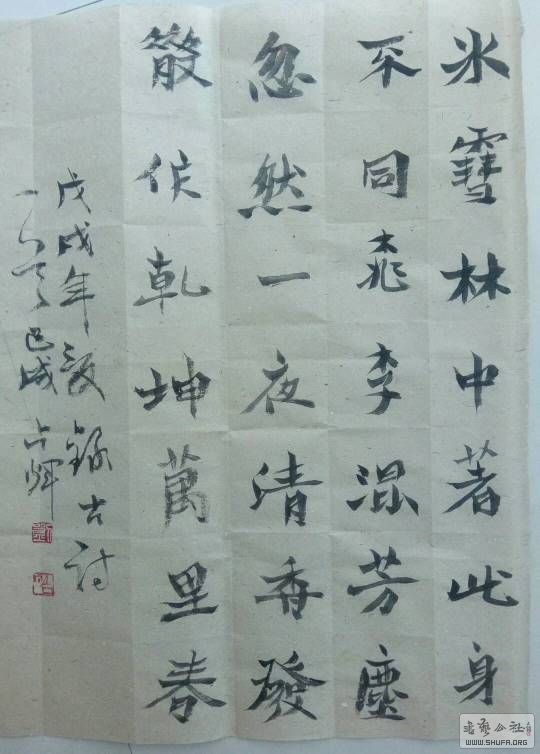 氷雪林中著此身
不同桃李混芳塵
忽然一夜清香發
散作乾坤萬里春
戊戌年夏錄古詩
一
占輝
WWW.SHUFA.ORG